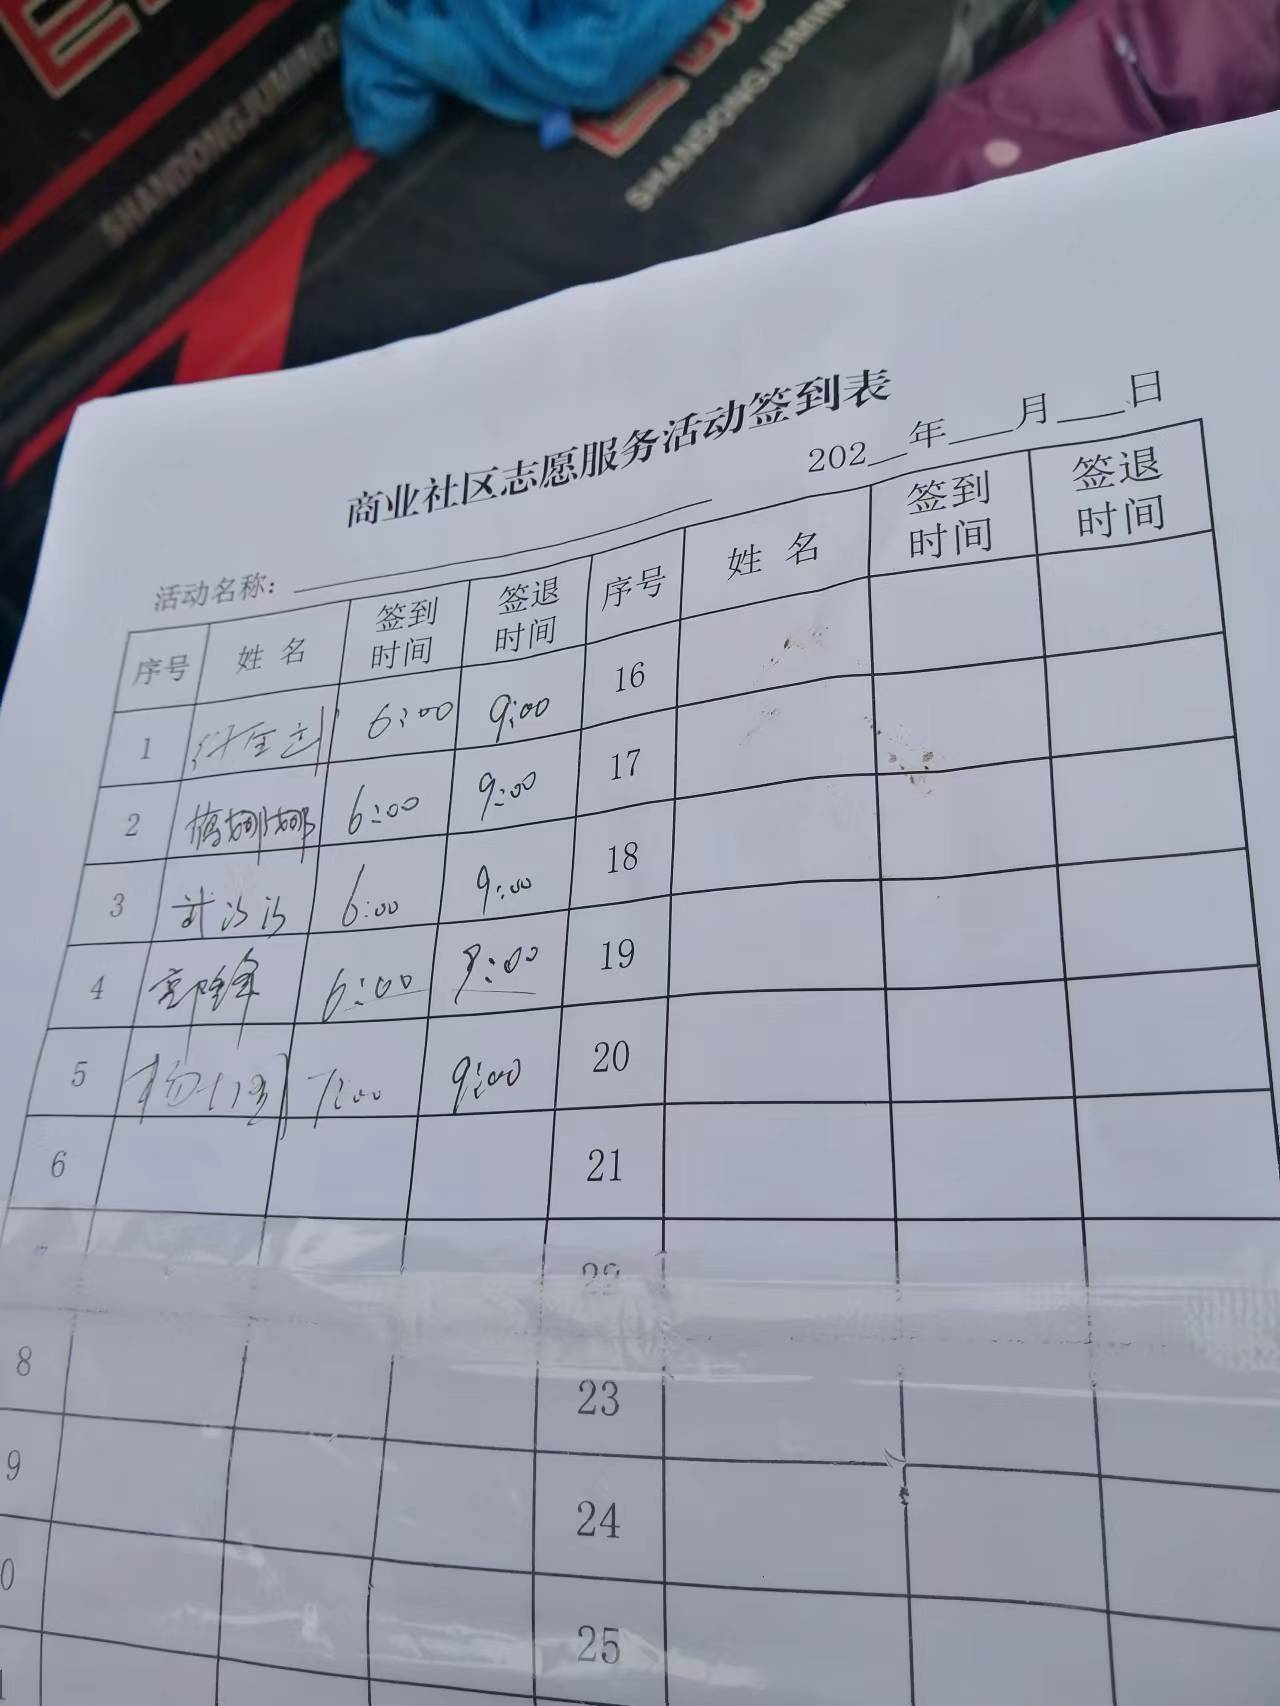 SHANDONGJUMING
SHANDONGJUMING
商业社区志愿服务活动签到表
202__年___月___日
活动名称：
序号 姓 名 签到时间 签退时间 序号 姓 名 签到时间 签退时间
1 6:00 9:00 16
2 娜娜 6:00 9:00 17
3 6:00 9:00 18
4 6:00 9:00 19
5 7:00 9:00 20
6 21
7 22
8 23
9 24
0 25